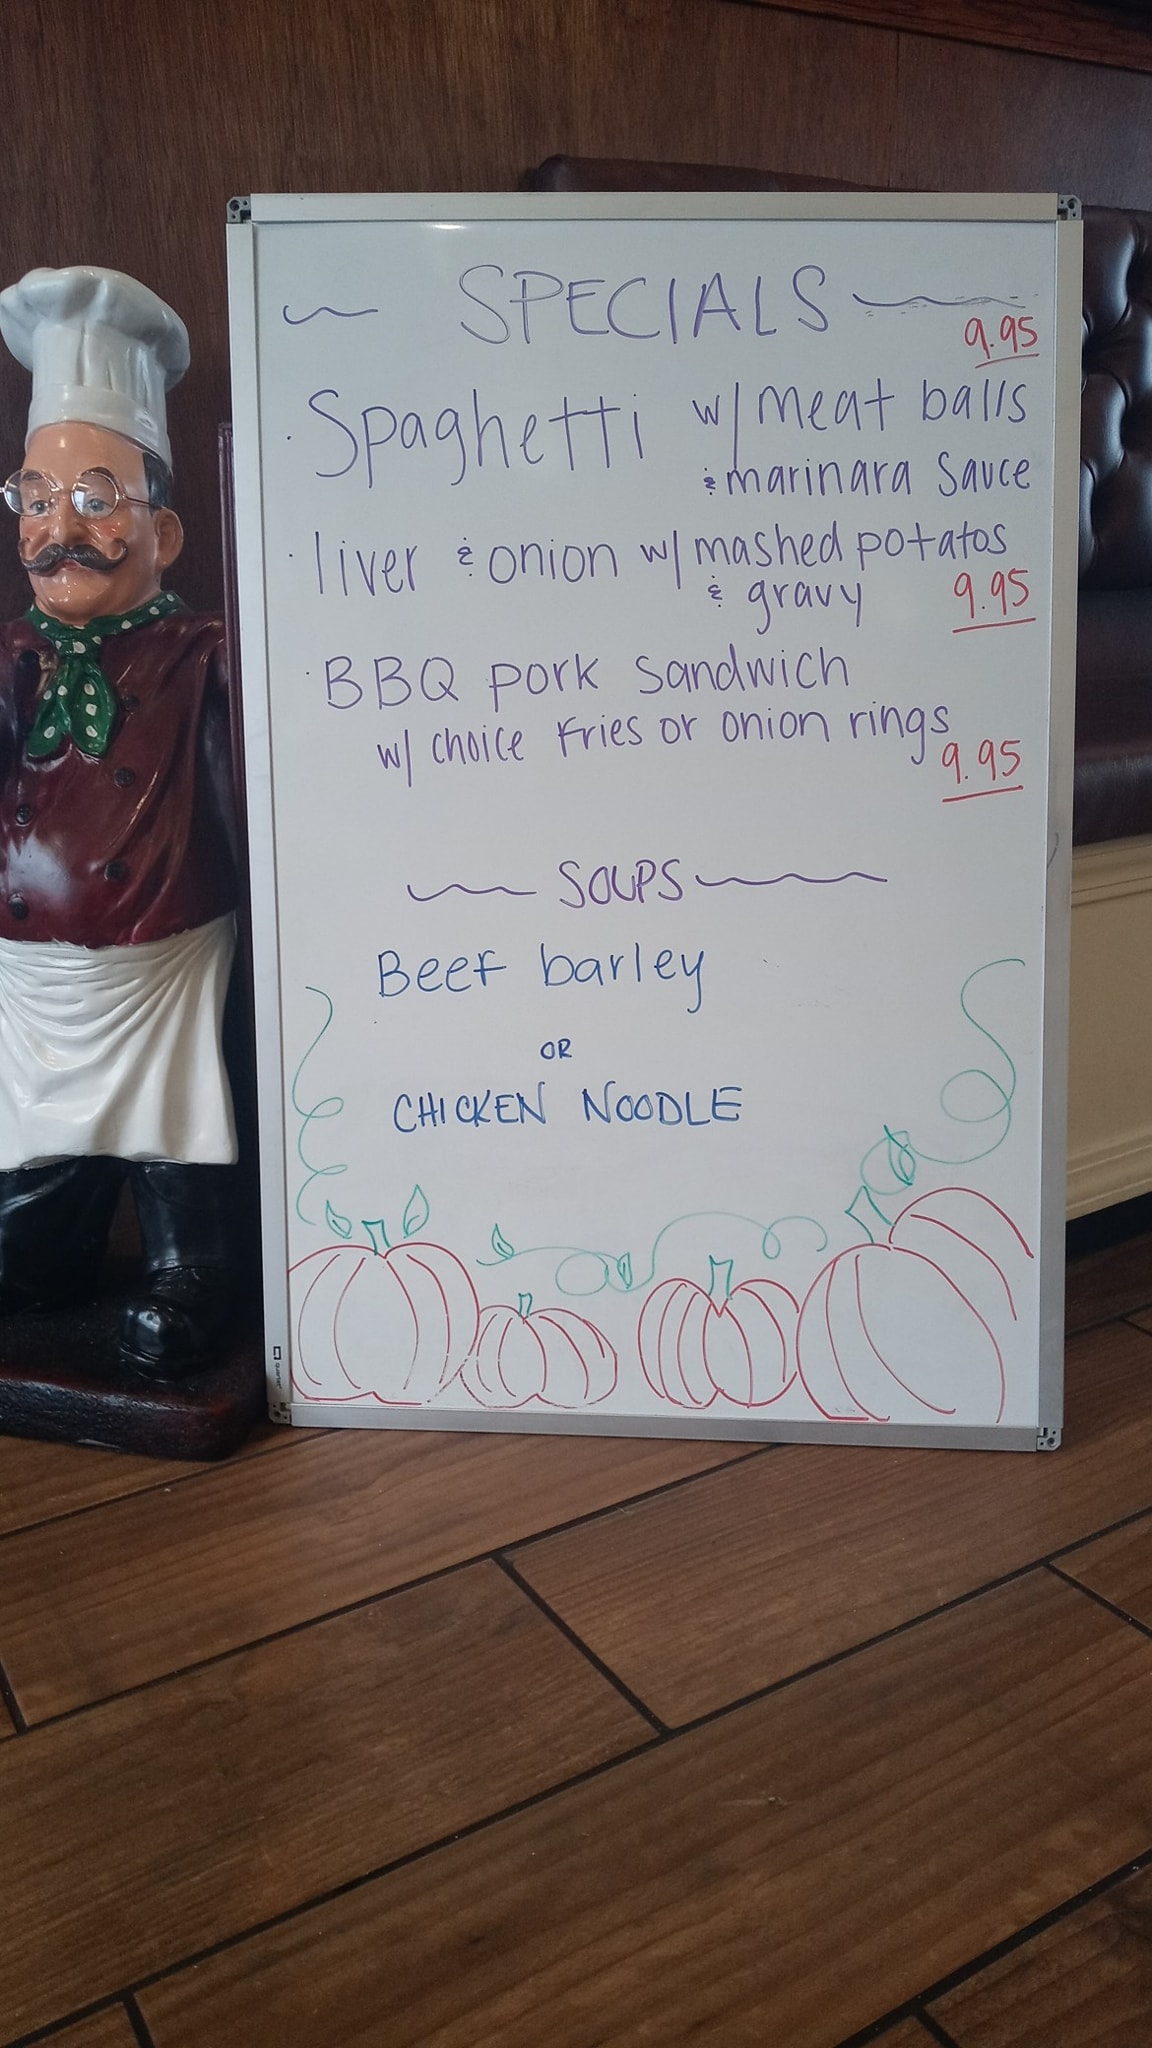 SPECIALS
9.95
· Spaghetti w/ meat balls
& marinara sauce
· liver & onion w/ mashed potatos
& gravy 9.95
· BBQ pork sandwich
w/ choice fries or onion rings
9.95
SOUPS
Beef barley
OR
CHICKEN NOODLE